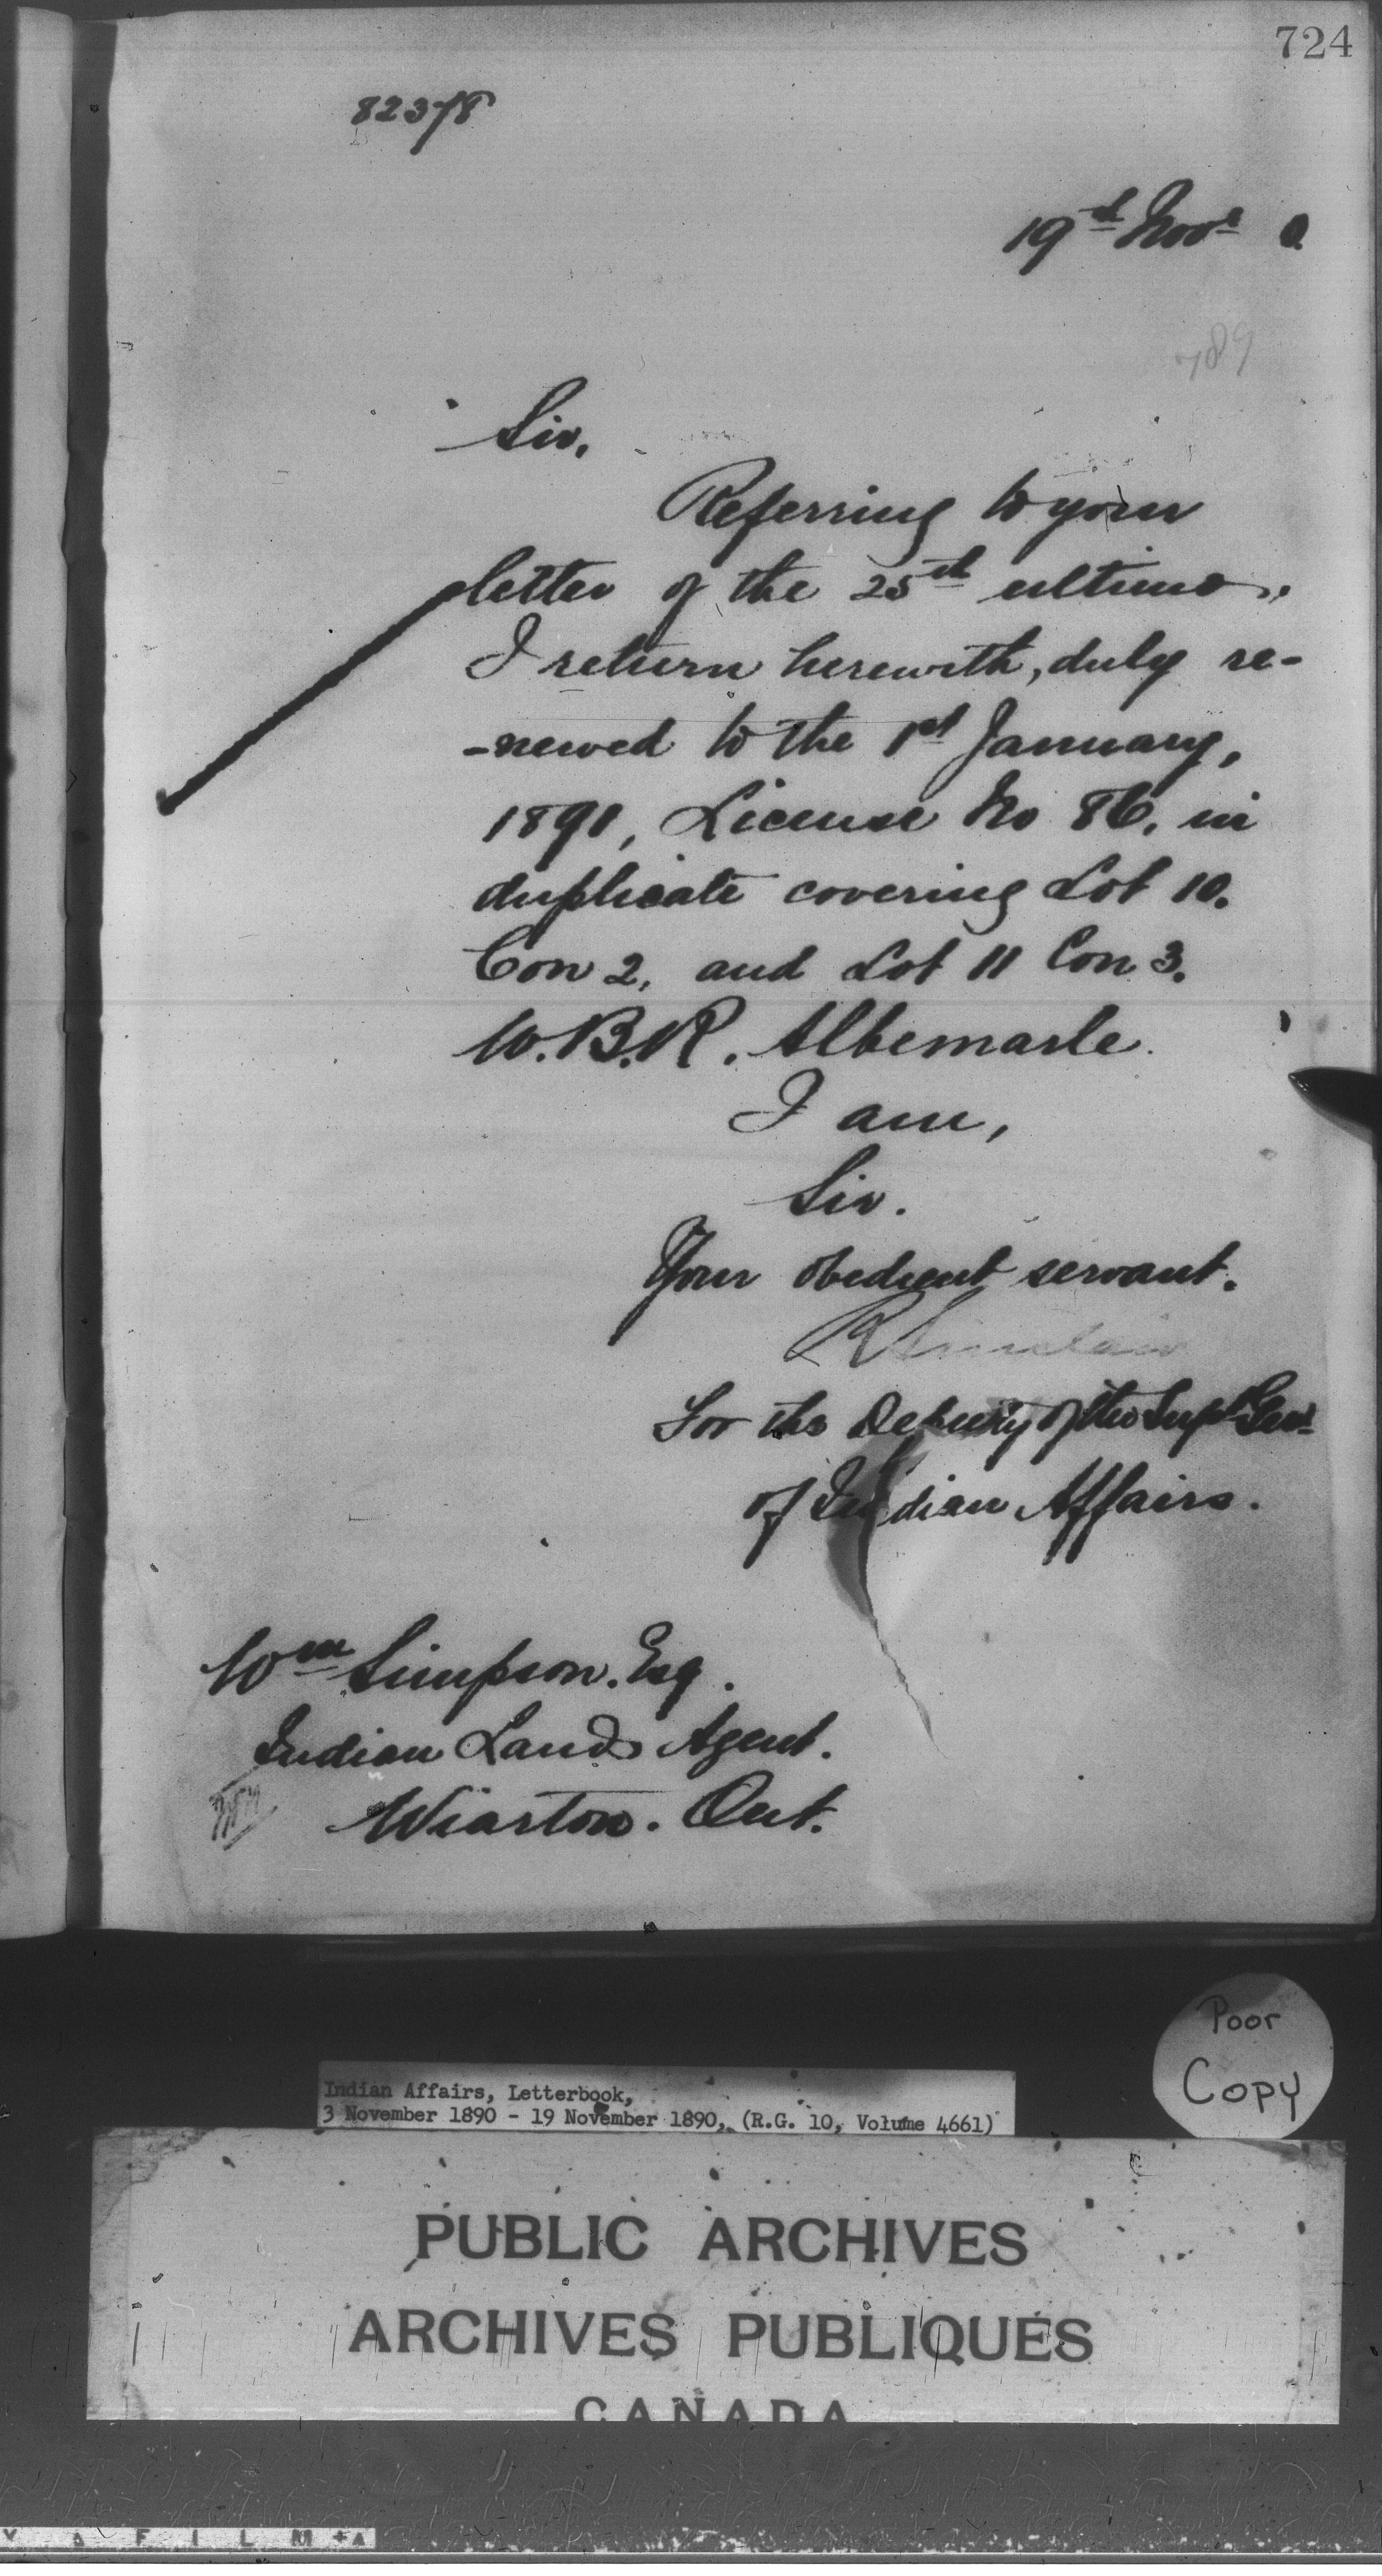 724
82378
19th Novr 0
789
Sir,
Referring to your
letter of the 25th ultimo,
I return herewith, duly re-
-newed to the 1st January,
1891, License No 86, in
duplicate covering Lot 10.
Con 2, and Lot 11 Con 3.
W.B.R. Albemarle.
I am,
Sir.
Your obedient servant.
R Sinclair
For the Deputy of the Supt Genl
of Indian Affairs.
Wm Simpson. Esq.
Indian Lands Agent.
Wiarton. Ont.
Poor
Copy
Indian Affairs, Letterbook,
3 November 1890 - 19 November 1890, (R.G. 10, Volume 4661)
PUBLIC ARCHIVES
ARCHIVES PUBLIQUES
CANADA